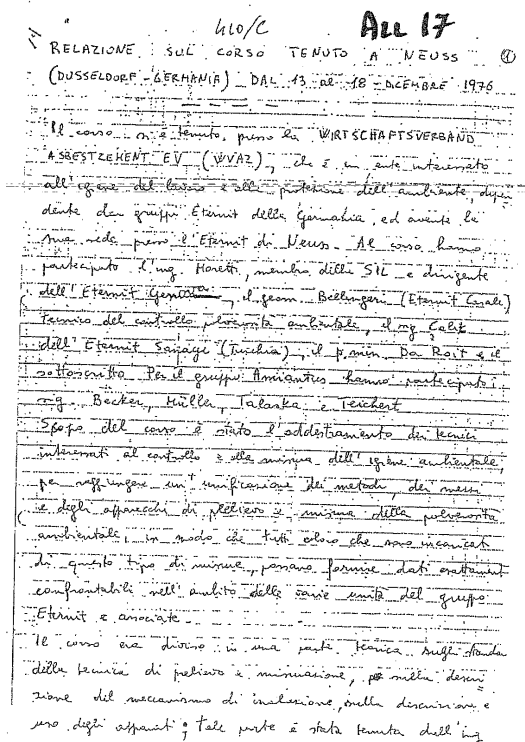 410/C All 17
RELAZIONE SUL CORSO TENUTO A NEUSS 1
(DUSSELDORF - GERMANIA) DAL 13 al 18 - DICEMBRE 1976
Il corso si è tenuto, presso la WIRTSCHAFTSVERBAND
ASBESTZEMENT EV (WVAZ), che è un ente interessato
all'igiene del lavoro e alla protezione dell'ambiente, dipen
dente dai gruppi Eternit della Germania, ed avente la
sua sede presso l'Eternit di Neuss. Al corso hanno
partecipato l'ing. Moretti, membro della SIL e dirigente
dell'Eternit Genova, il geom Bellingeri (Eternit Casale)
Tecnico del controllo polverosità ambientale, il sig Calik
dell'Eternit Sanayi (Turchia), il p. min Da Roit e il
sottoscritto Per il gruppo Amiantus hanno partecipato i
sig. Becker, Müller, Talaska e Teichert
Scopo del corso è stato l'addestramento dei tecnici
interessati al controllo e alla misura dell'igiene ambientale,
per raggiungere un'unificazione dei metodi, dei mezzi
e degli apparecchi di prelievo e misura della polverosità
ambientale, in modo che tutti coloro che sono incaricati
di questo tipo di misure, possano fornire dati esattament
confrontabili nell'ambito delle varie unità del gruppo
Eternit e associate.
Il corso era diviso in una parte teorica sugli standa
della tecnica di prelievo e misurazione, sulla descri
zione del meccanismo di inalazione, sulla descrizione e
uso degli apparati; tale parte è stata tenuta dall'ing